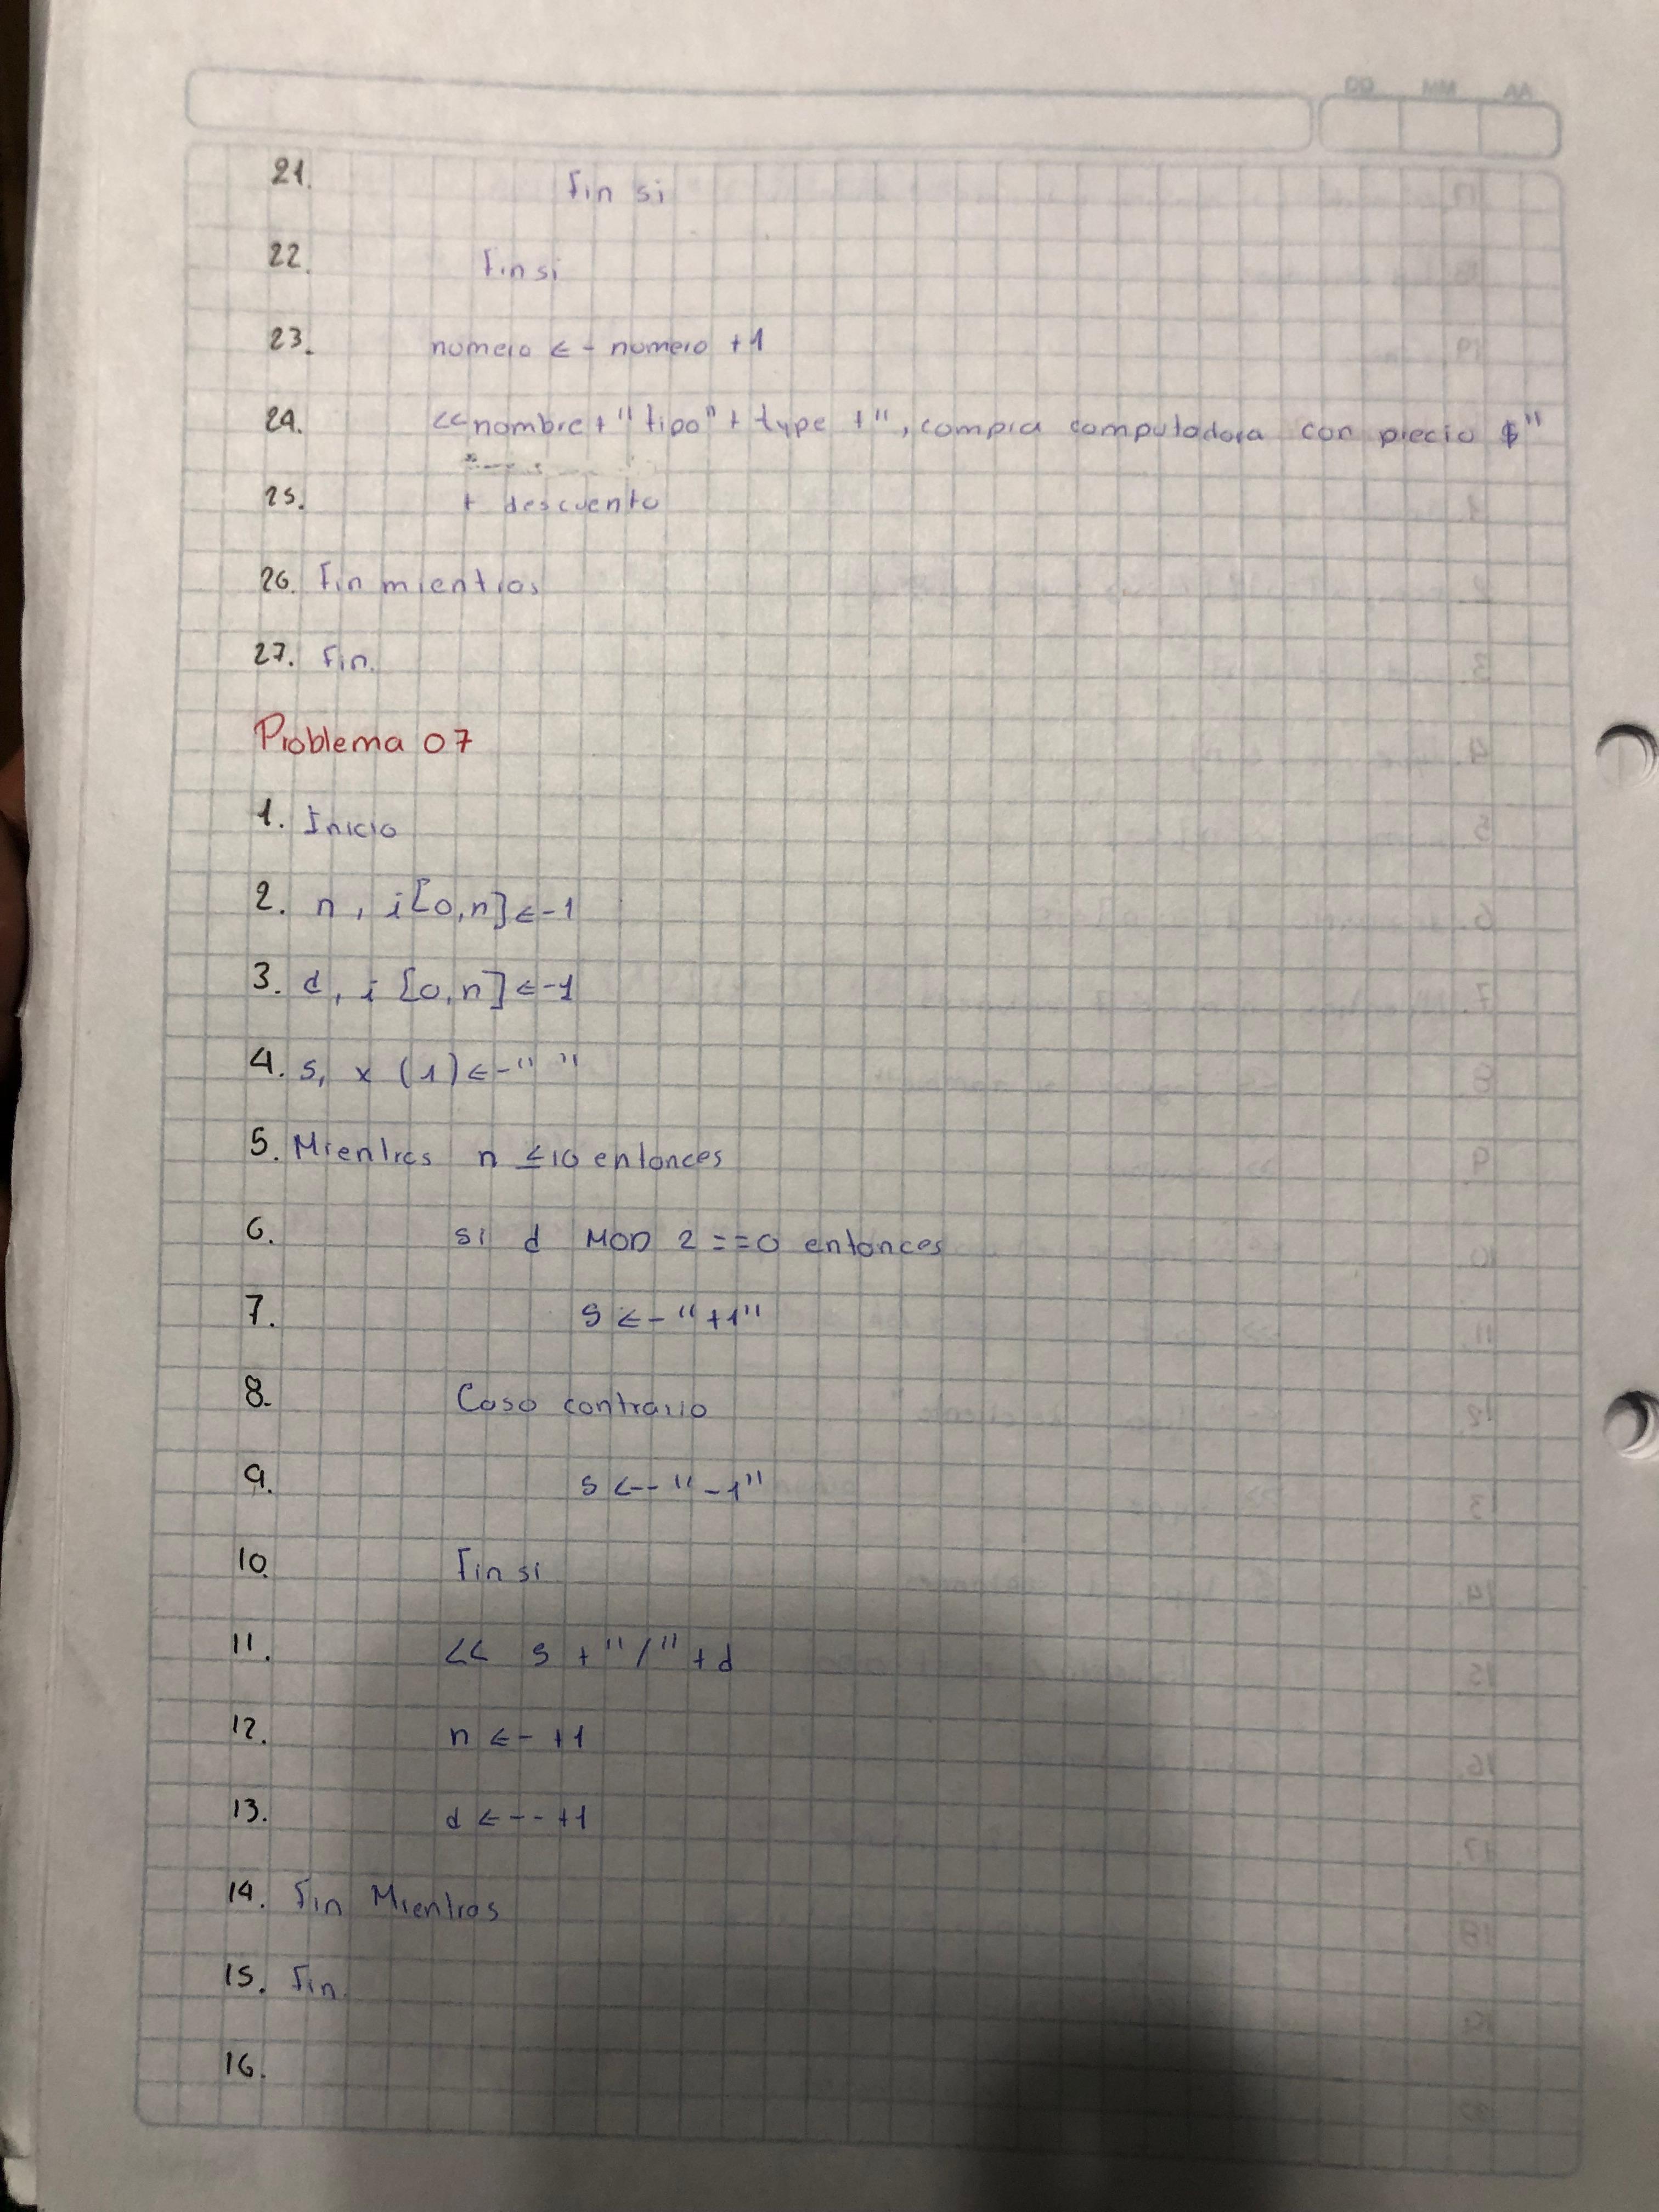 AA MM DD
21. Fin si
22. Fin si
23. numero <- numero +1
24. <<nombre+"tipo"+type+", compra computadora con precio $"
25. + descuento
26. Fin mientras
27. Fin.
Problema 07
1. Inicio
2. n, i[0,n]<-1
3. d, i[0,n]<-1
4. s, x (1)<-" "
5. Mientras n ≤10 entonces
6. si d MOD 2==0 entonces
7. s <-"+1"
8. Caso contrario
9. s <--"-1"
10. Fin si
11. << s +"/"+d
12. n <- +1
13. d <-- +1
14. Fin Mientras
15. Fin.
16.